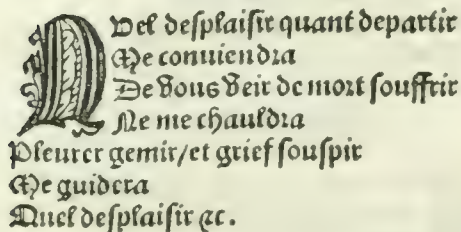 Quel desplaisir quant departir
Me conuiendra
De vous veir de mort souffrir
Ne me chauldra
Pleurer gemir/et grief souspir
Me guidera
Quel desplaisir ⁊c.